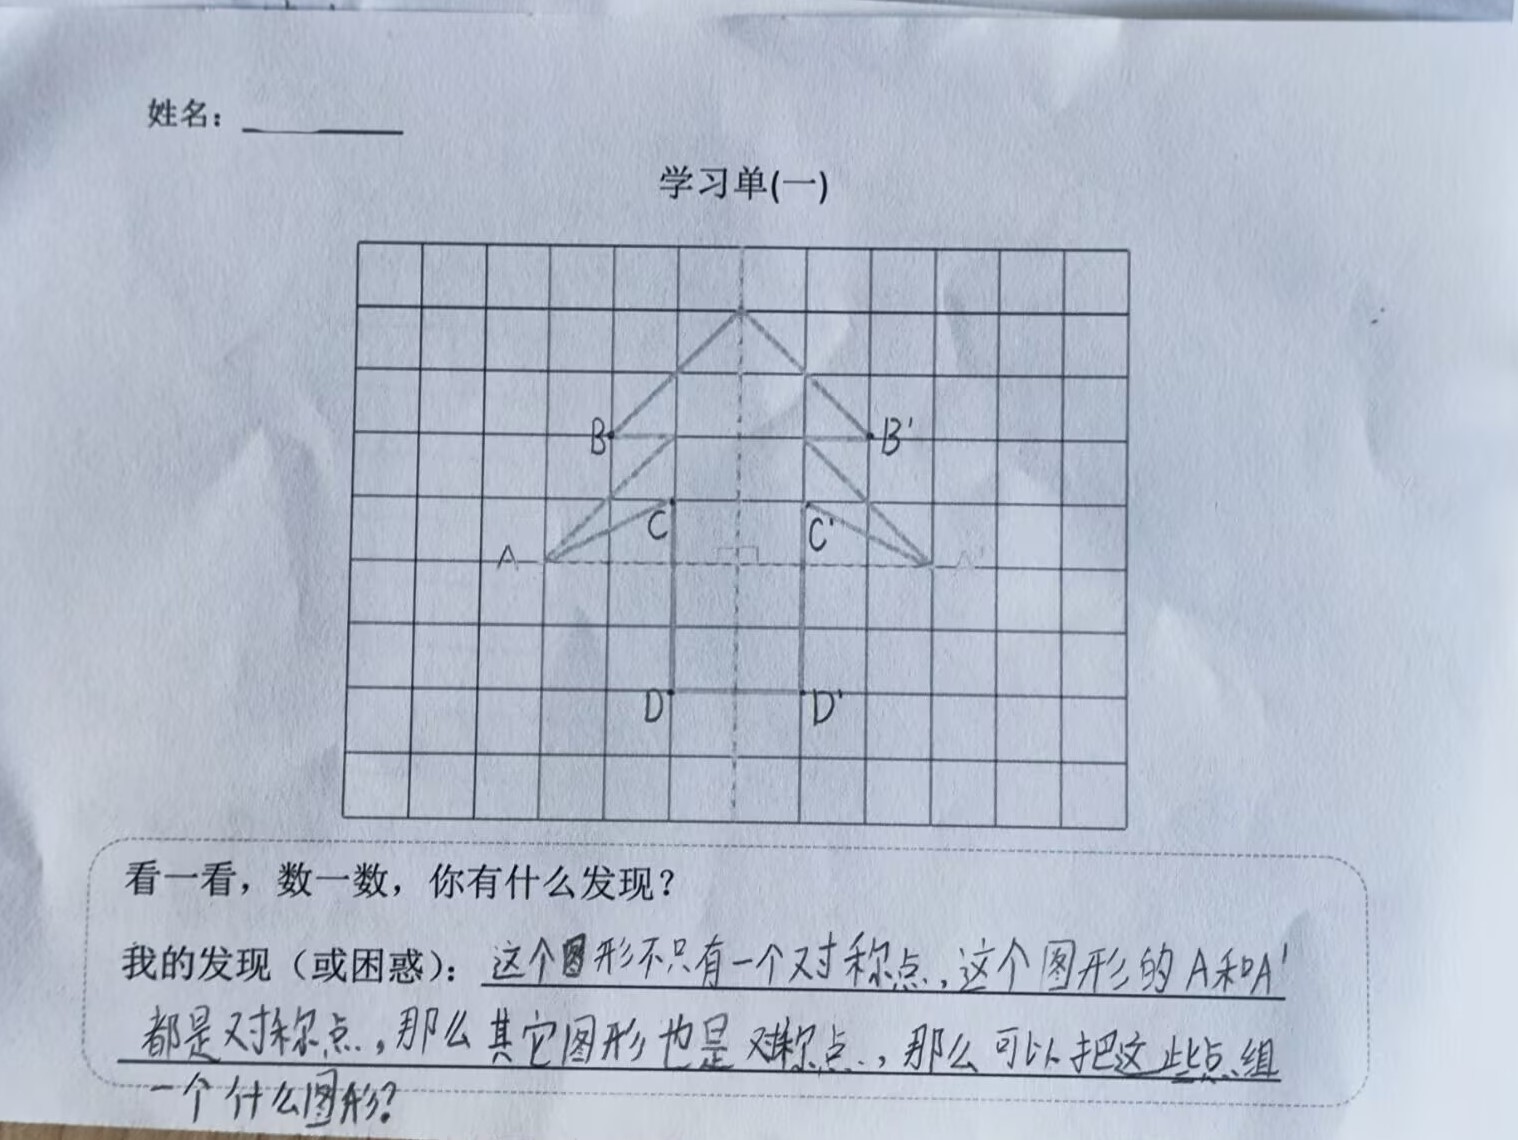 姓名：
学习单(一)
B B'
C C'
A A'
D D'
看一看，数一数，你有什么发现？
我的发现（或困惑）：这个图形不只有一个对称点，这个图形的A和A'
都是对称点，那么其它图形也是对称点，那么可以把这些点组
一个什么图形？